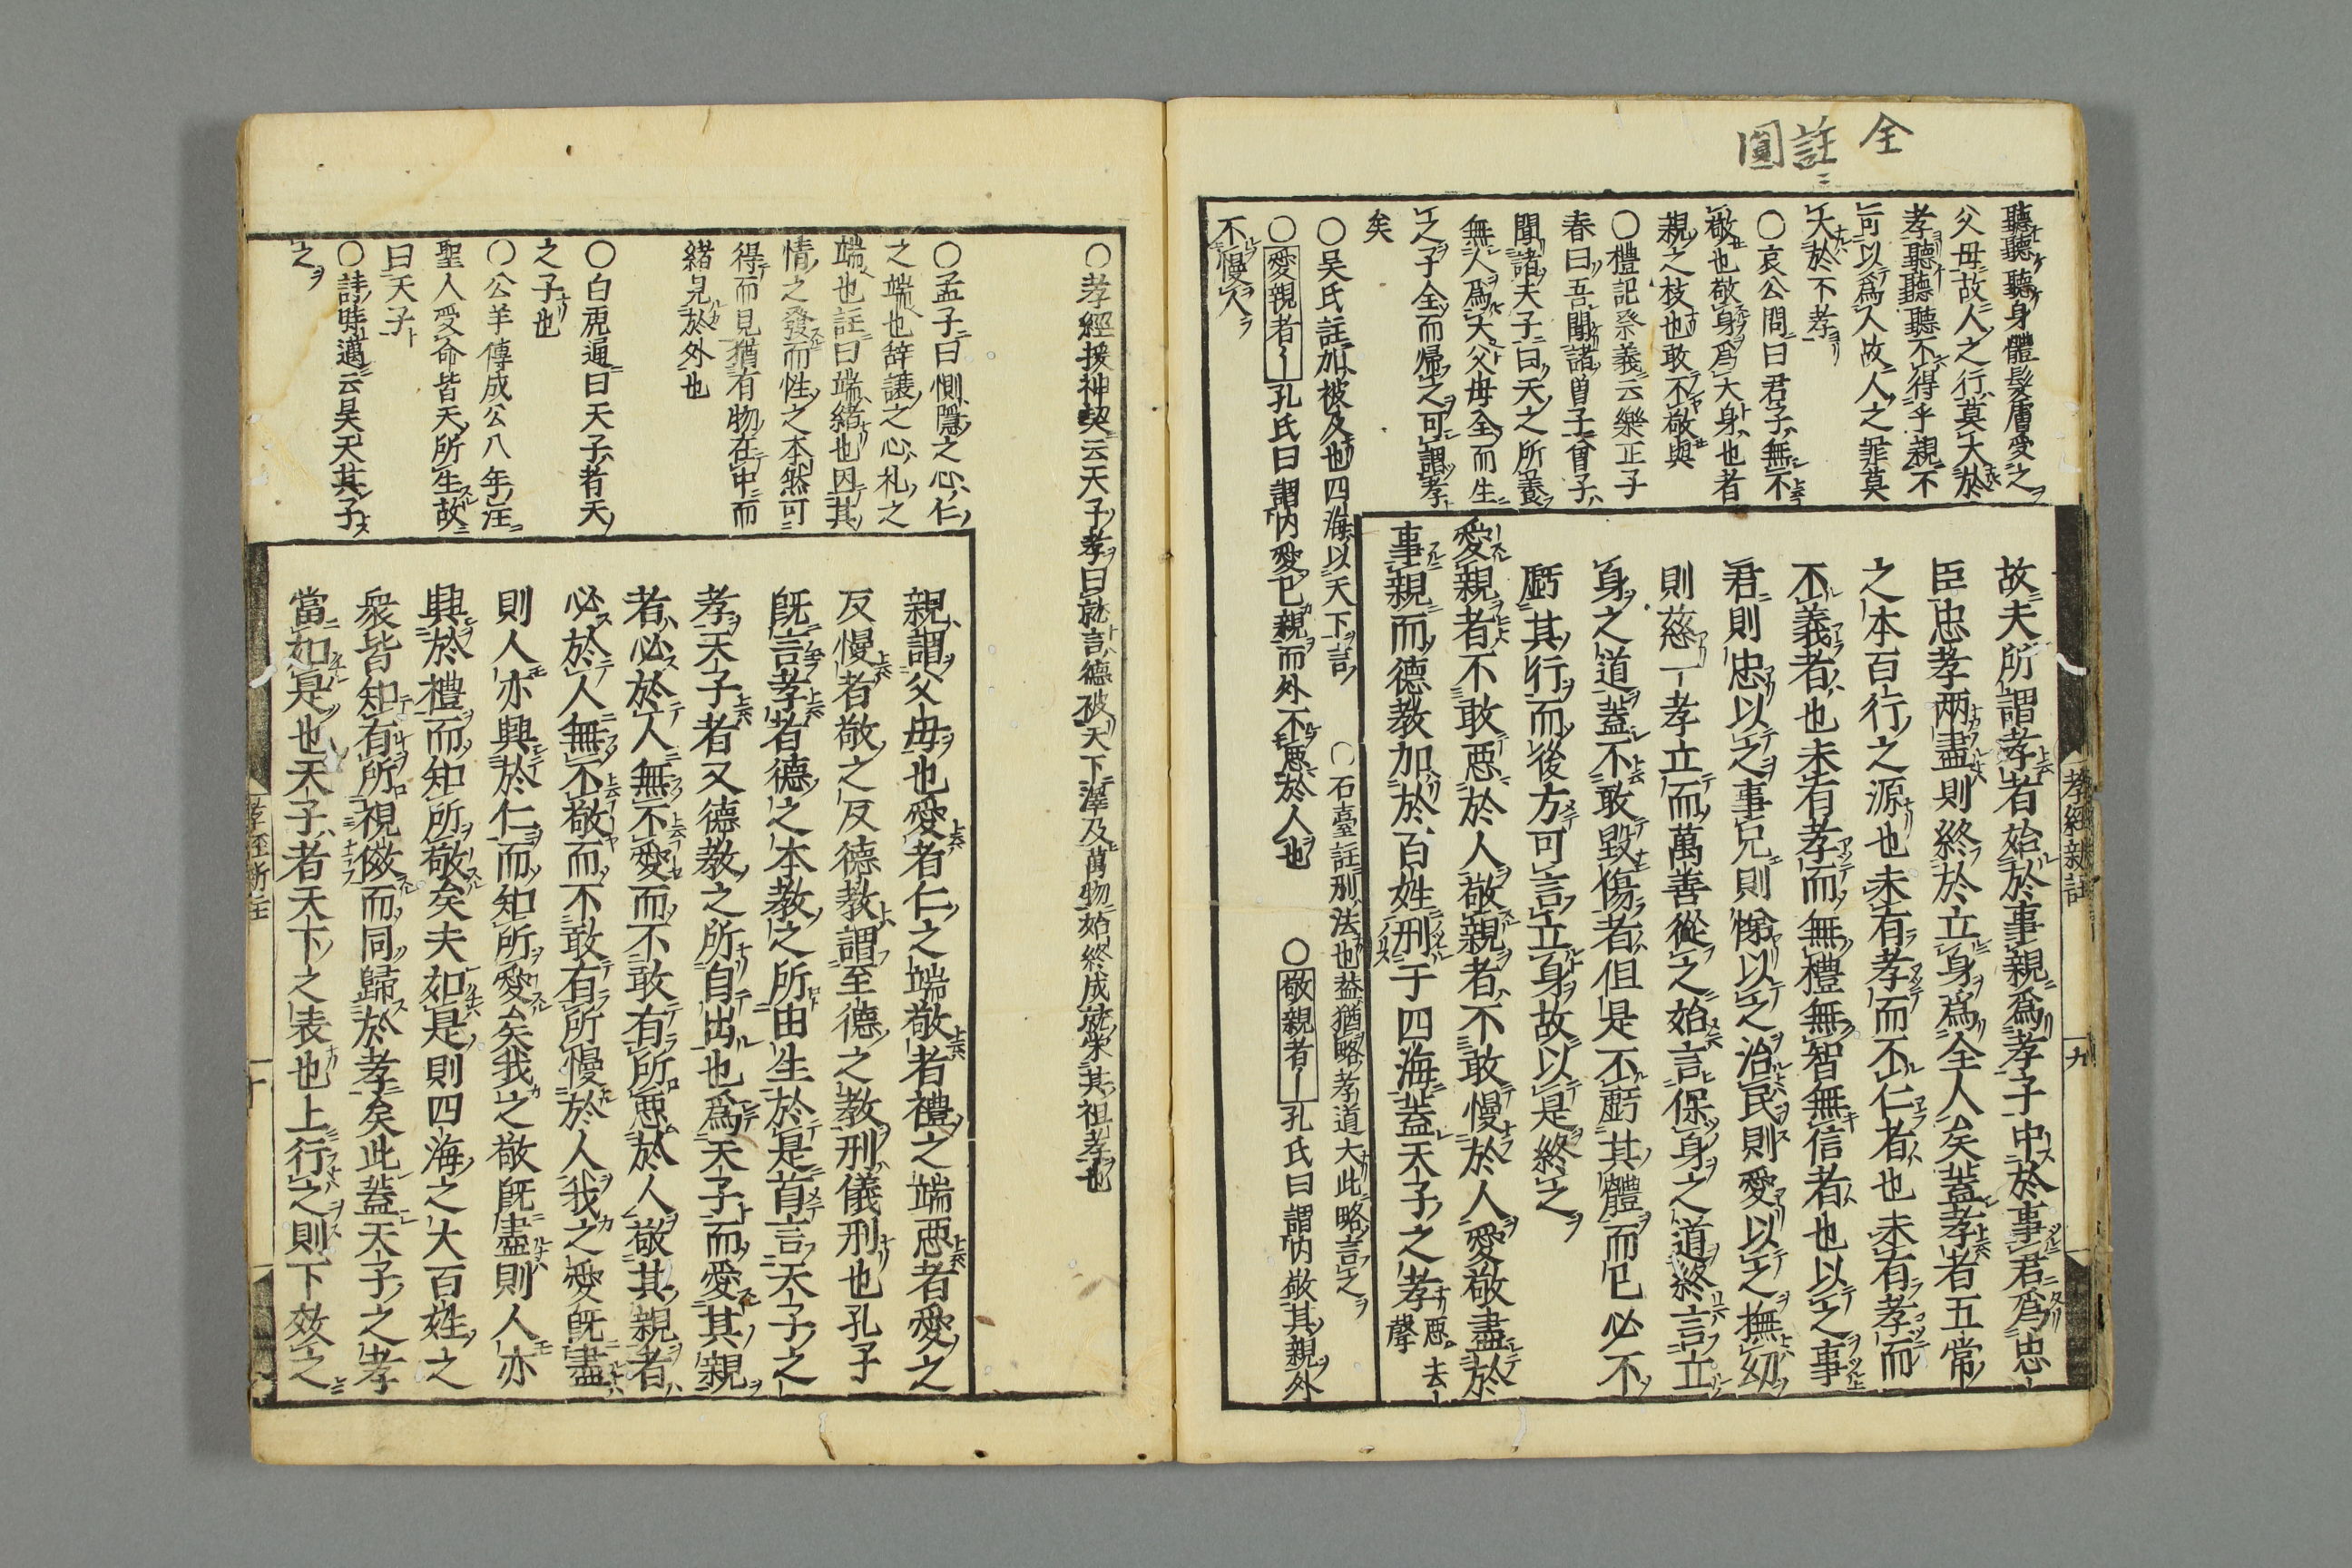 全
註
圓
聽聽聽身體髮膚受之
父母故人之行莫大於
孝聽聽聽不得乎親不
可以爲人故人之罪莫
大於不孝
○哀公問曰君子無不
敬也敬身爲大身也者
親之枝也敢不敬與
○禮記祭義云樂正子
春曰吾聞諸曽子曽子
聞諸夫子曰天之所養
無人爲大父母全而生
之子全而歸之可謂孝
矣
○吴氏註加被及也四海以天下言
○石臺註刑法也蓋猶略孝道大此略言之
○愛親者孔氏曰謂内愛己親而外不悪於人也
○敬親者孔氏曰謂内敬其親外
不慢人
故夫所謂孝者始於事親爲孝子中於事君爲忠
臣忠孝兩盡則終於立身爲全人矣蓋孝者五常
之本百行之源也未有孝而不仁者也未有孝而
不義者也未有孝而無禮無智無信者也以之事
君則忠以之事兄則悌以之治民則愛以之撫幼
則慈一孝立而萬善從之始言保身之道終言立
身之道蓋不敢毀傷者但是不虧其體而已必不
虧其行而後方可言立身故以是終之
愛親者不敢悪於人敬親者不敢慢於人愛敬盡於
事親而德教加於百姓刑于四海蓋天子之孝
悪去
聲
孝經新註
九
○孝經援神契云天子孝曰就言德被天下澤及萬物始終成就榮其祖孝也
○孟子曰惻隱之心仁
之端也辞讓之心礼之
端也註曰端緒也因其
情之發而性之本然可
得而見猶有物在中而
緒見於外也
○白虎通曰天子者天
之子也
○公羊傳成公八年注
聖人受命皆天所生故
曰天子
○詩時邁云昊天其子
之
親謂父母也愛者仁之端敬者禮之端悪者愛之
反慢者敬之反德教謂至德之教刑儀刑也孔子
既言孝者德之本教之所由生於是首言天子之
孝天子者又德教之所自出也爲天子而愛其親
者必於人無不愛而不敢有所悪於人敬其親者
必於人無不敬而不敢有所慢於人我之愛既盡
則人亦興於仁而知所愛矣我之敬既盡則人亦
興於禮而知所敬矣夫如是則四海之大百姓之
衆皆知有所視傚而同歸於孝矣此蓋天子之孝
當如是也天子者天下之表也上行之則下效之
孝經新註
十